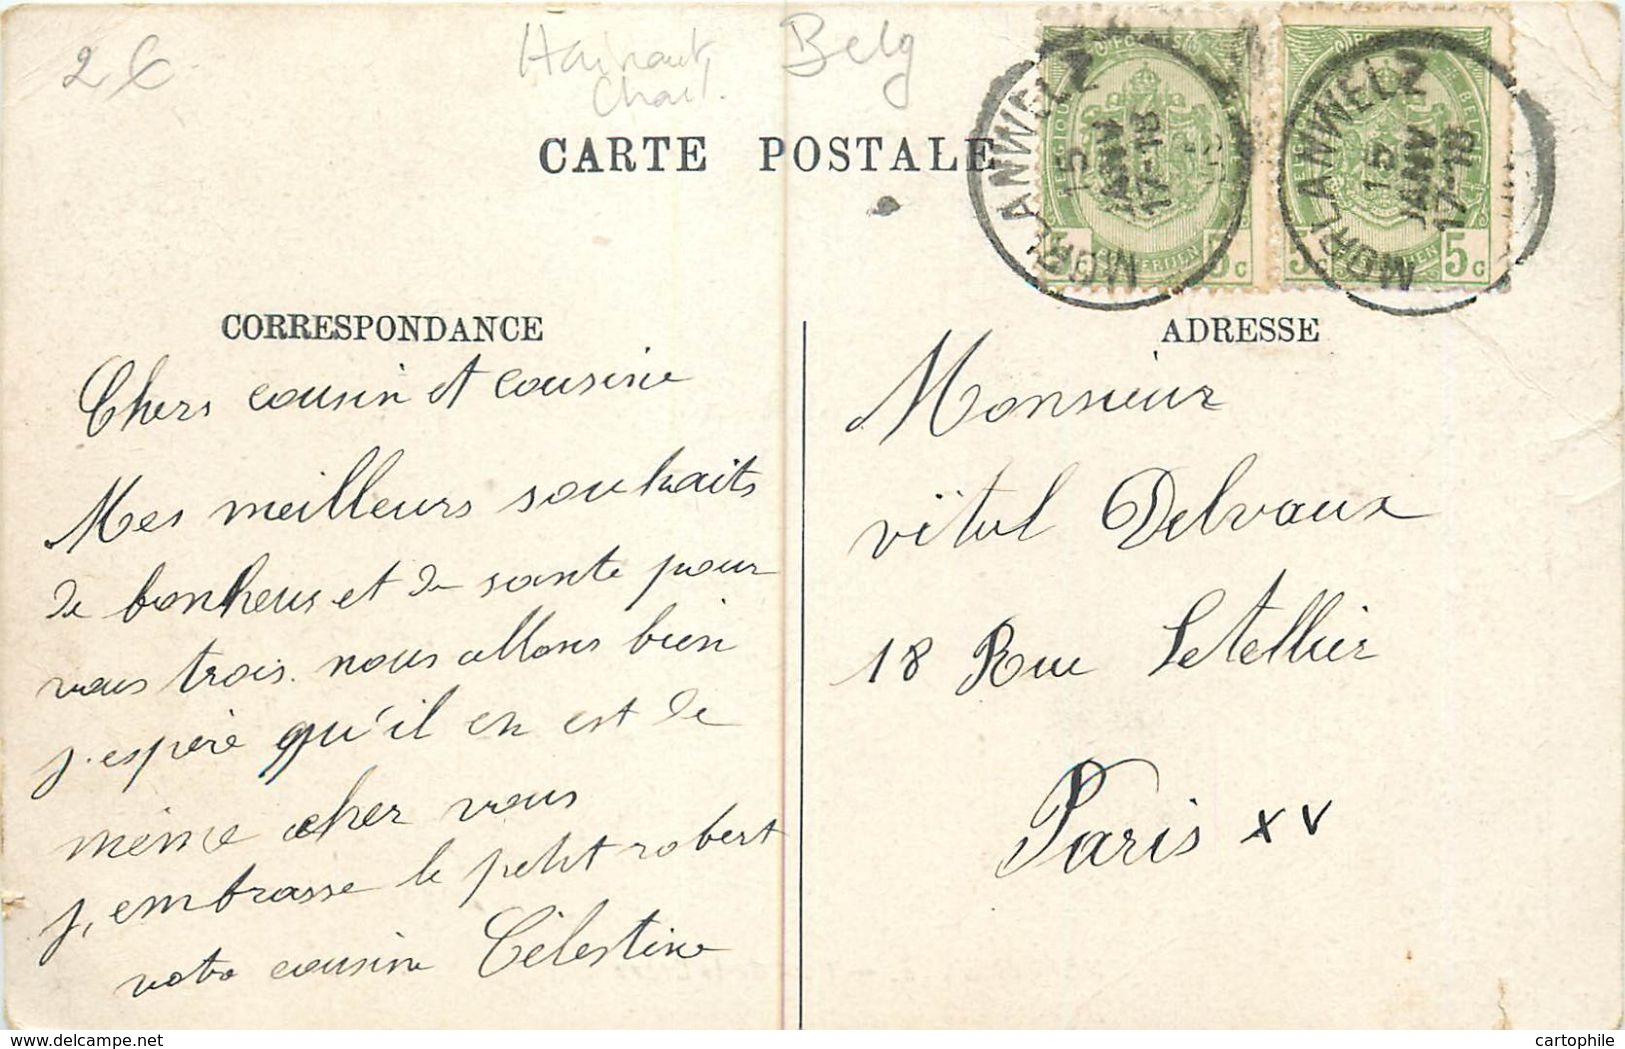 2 €
Hainaut
Belg
CARTE POSTALE
MORLANWELZ
15
JANV
17-18
MORLANWELZ
15
JANV
17-18
5 c
5 c
5 c
CORRESPONDANCE
Chers cousin et cousine
Mes meilleurs souhaits
de bonheur et de sante pour
vous trois. nous allons bien
j.espère qu'il en est de
même cher vous
j,embrasse le petit robert
votre cousine Célestine
ADRESSE
Monsieur
vital Delvaux
18 Rue Letellier
Paris XV
delcampe.net
cartophile